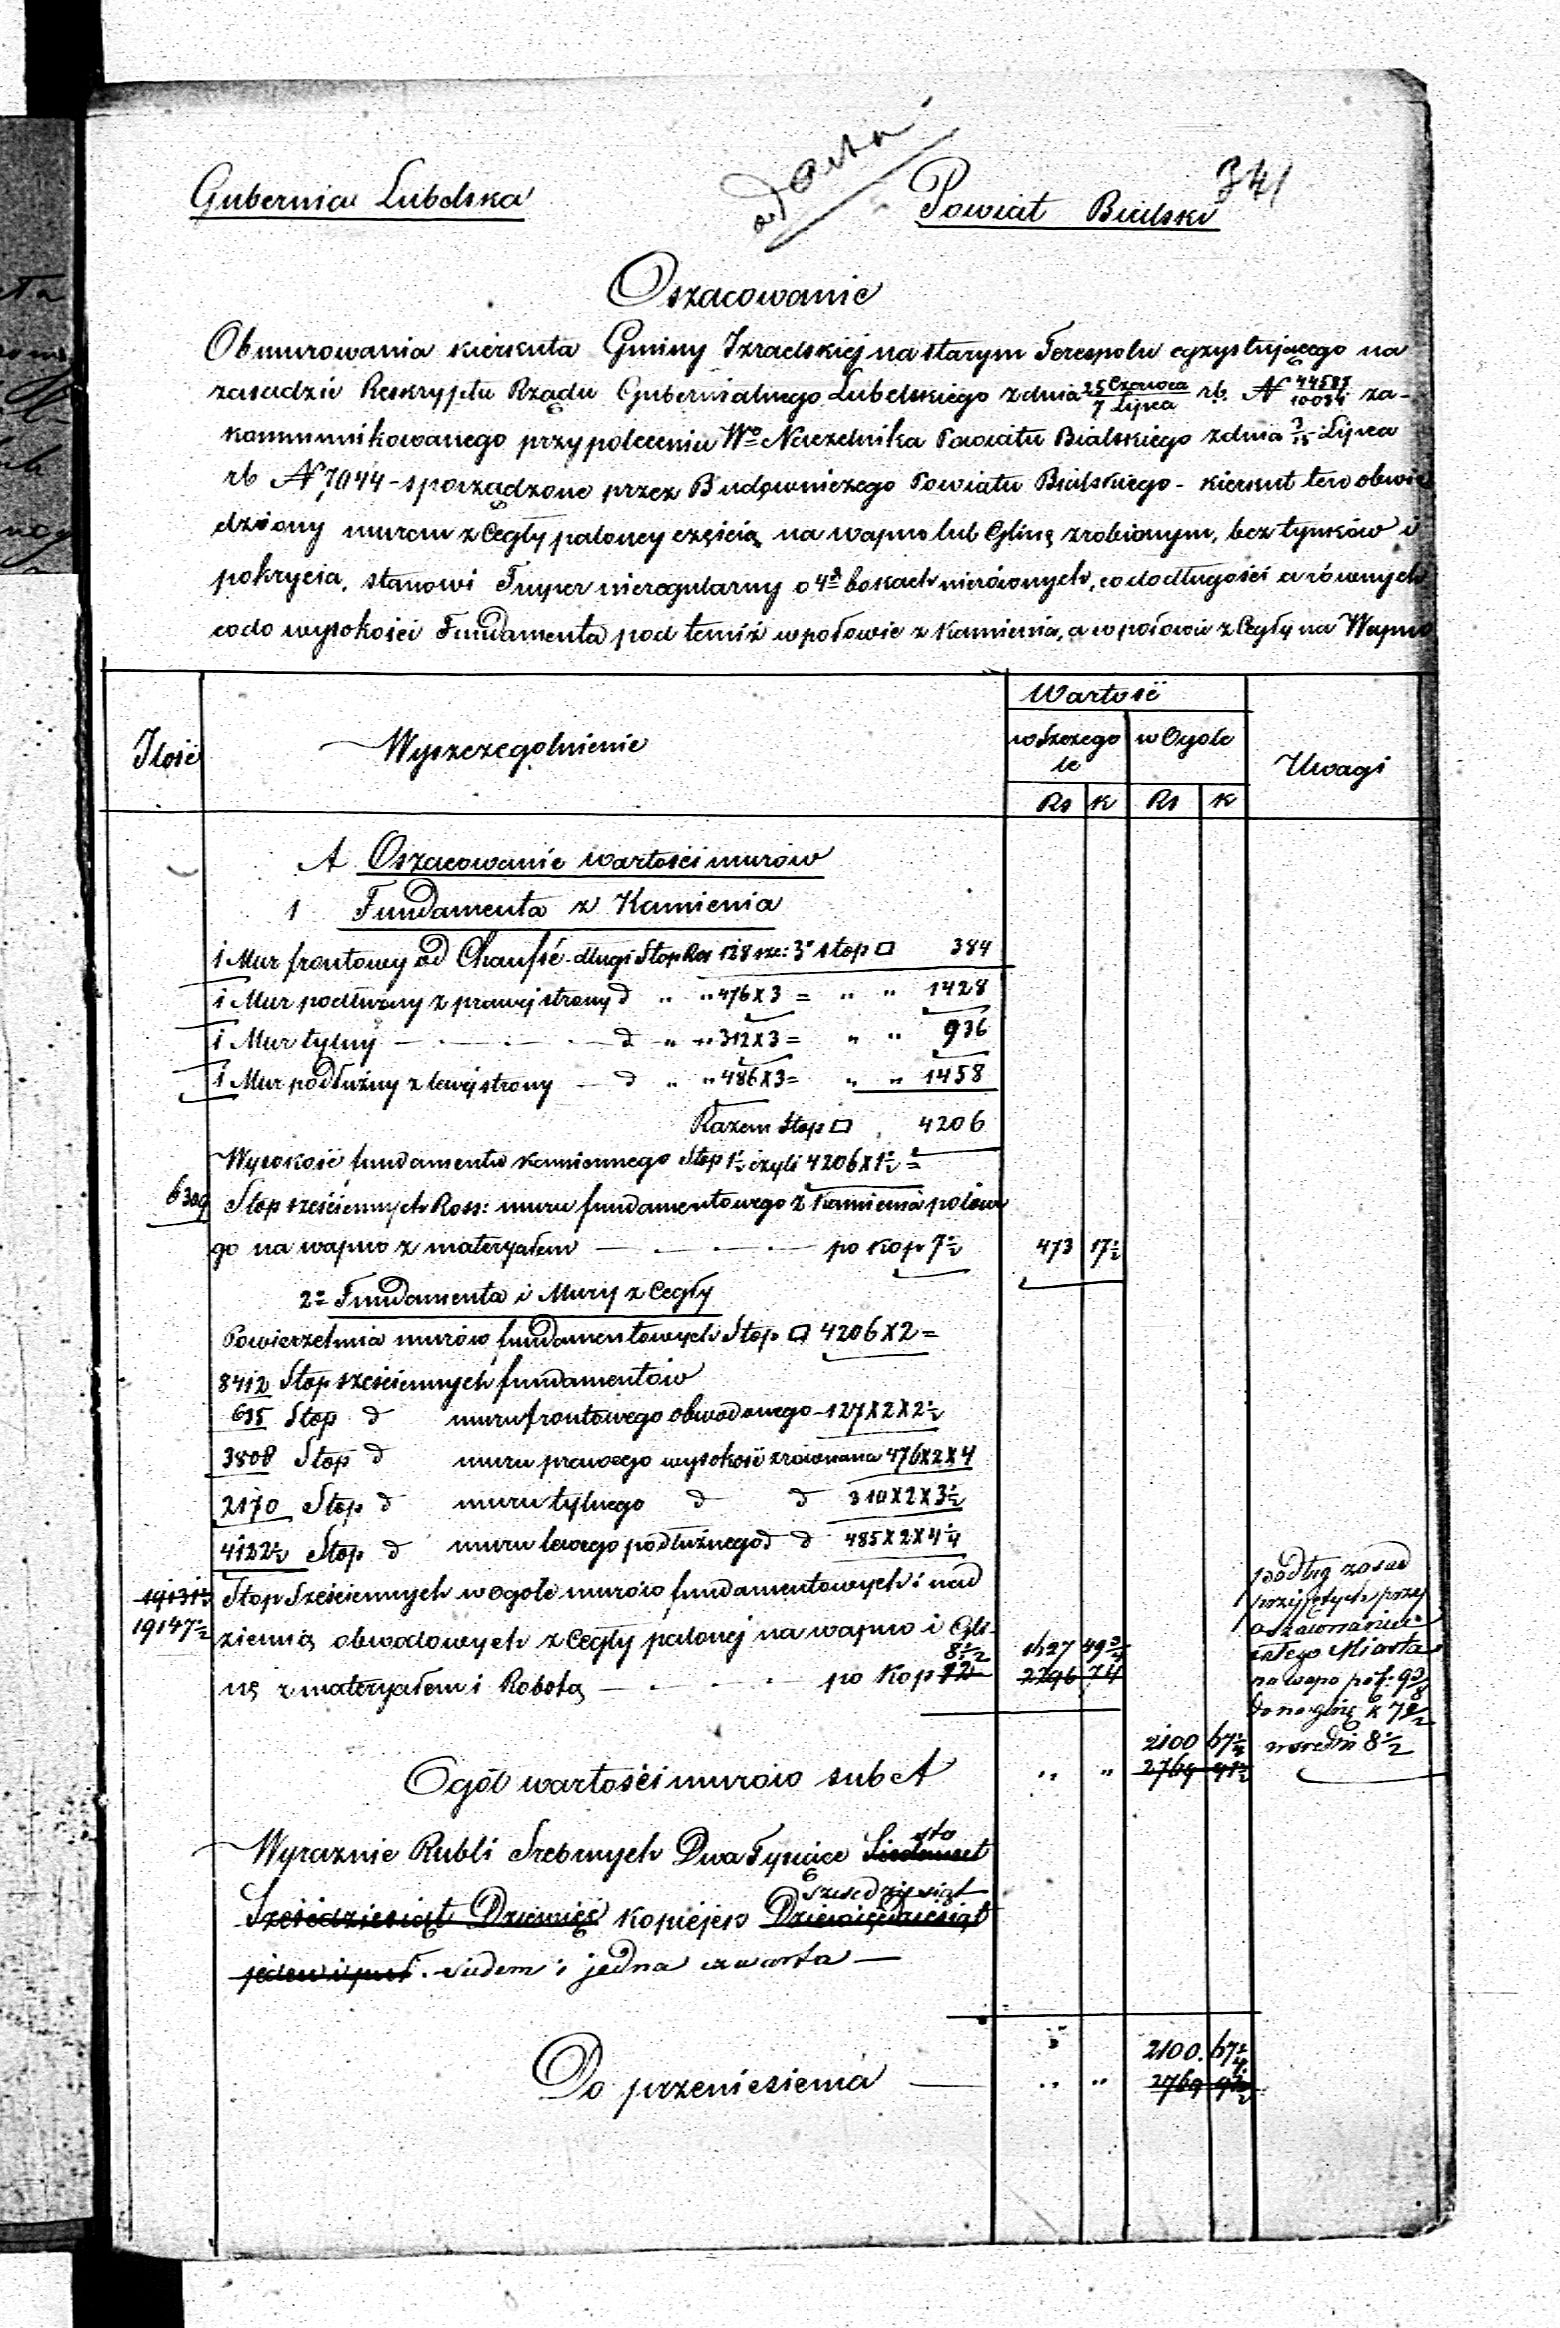 341
Gubernia Lubelska
Powiat Bialski
Oszacowanie
Obmurowania kierkuta Gminy Izraelskiej na starym Terespolu egzystującego na
zasadzie Reskryptu Rządu Gubernialnego Lubelskiego z dnia 25 Czerwca / 7 Lipca rb. N 44587 / 10084 za-
kommunikowanego przy poleceniu Wo Naczelnika Powiatu Bialskiego z dnia Lipca
rb N 7044 - sporządzone przez Budowniczego Powiatu Bialskiego - kierkut ten obwie
dziony murem z Cegły paloney częścią na wapno lub Glinę zrobionym, bez tynków i
pokrycia, stanowi nieregularny o 4ch bokach nierównych, co do długości a równych
co do wysokości Fundamenta pod temiż w połowie z Kamienia, a w połowie z Cegły na Wapno
Ilość
Wyszczegolnienie
Wartość
w Szczego
le
w Ogole
Uwagi
Rs K Rs K
A Oszacowanie wartości murów
1 Fundamenta z Kamienia
1 Mur frontowy od Chaussé długi Stop Ros 128 sze: 3" stop □ 384
1 Mur podłużny z prawej strony d " " 476 X 3 = " " 1428
1 Mur tylny d " " 312 X 3 = " " 936
1 Mur podłużny z lewej strony d " " 486 X 3 = " " 1458
Razem Stop □ 4206
Wysokość fundamentu kamiennego Stop 1½ czyli 4206 X 1½ =
6309 Stop sześciennych Ross: muru fundamentowego z Kamienia polowe
go na wapno z materyałem po kop 7½ 473 17½
2= Fundamenta i Mury z Cegły
Powierzchnia murów fundamentowych Stop □ 4206 X 2 =
8412 Stop sześciennych fundamentów
635 Stop d muru frontowego obwodowego 127 X 2 X 2½
3808 Stop d muru prawego wysokość zrównana 476 X 2 X 4
2170 Stop d muru tylnego d d 310 X 2 X 3½
4122½ Stop d muru lewego podłużnego d d 485 X 2 X 4¼
19131½ Stop Sześciennych w ogole murów fundamentowych i nad
19147½ ziemią obwodowych z Cegły palonej na wapno i Gli-
8½ 1627 49¾
nę z materyałem i Robotą po Kop 12 2296 74
podług zasad
przyjętych przy
oszacowaniu
całego Miasta
na wapo po k. 9⅜
na glinę k 7½
w średni 8½
2100 67¼
Ogół wartości murów sub A " " 2769 91½
Wyraznie Rubli Srebrnych Dwa Tysiące sto Siedemset
Sześćdziesiąt Dziewięć kopiejek Szescdziesiąt Dziewięćdziesiąt
jeden i puł. siedem i jedna czwarta
2100. 67¼
Do przeniesienia " " 2769 91½